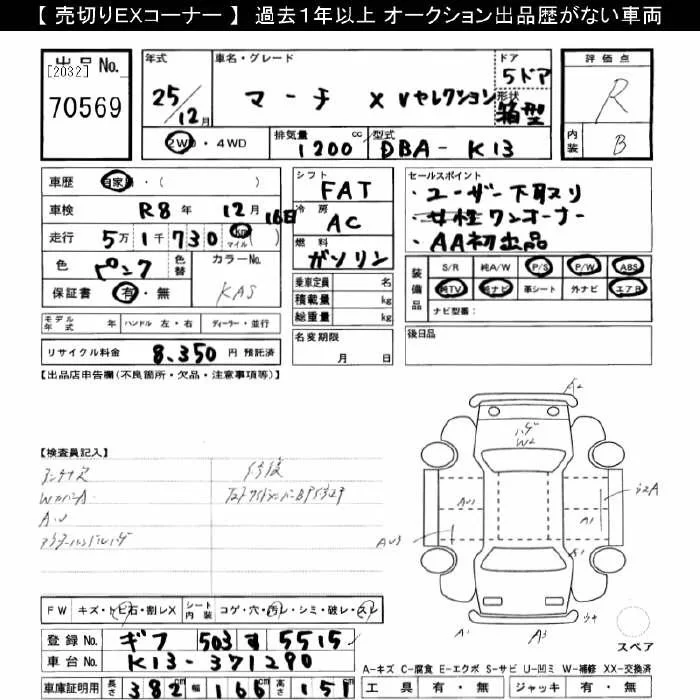 【 売切りEXコーナー 】 過去1年以上 オークション出品歴がない車両
出品No.
[2032]
70569
年式
25/12月
車名・グレード
マーチ X Vセレクション
ドア
5ドア
形状
箱型
評価点
R
内装
B
2WD・4WD
排気量 1200 cc
型式 DBA-K13
車歴 自家用・( )
車検 R8年 12月 16日
走行 5万1千730 Km マイル ( )
色 ピンク
色替
カラーNo.
KAS
保証書 有・無
シフト
FAT
冷房
AC
燃料
ガソリン
乗車定員 名
積載量 kg
総重量 kg
名変期限
月 日
セールスポイント
・ユーザー下取り
・女性ワンオーナー
・AA初出品
装備品
S/R 純A/W P/S P/W ABS
純TV 純ナビ 革シート 外ナビ エアB
ナビ型番:
モデル年式 年 ハンドル 左・右 ディーラー・並行
リサイクル料金 8,350 円 預託済
後日品
【出品店申告欄(不良箇所・欠品・注意事項等)】
【検査員記入】
アンテナ欠
WカバーA
A.U
A2
W2
A1
A3
FW キズ・トビ石・割レX
シート内装 コゲ・穴・汚レ・シミ・破レ・スレ
登録No. ギフ 503 す 5515
車台No. K13-371290
車庫証明用 長さ 382 cm 幅 166 cm 高さ 151 cm
スペア
A-キズ C-腐食 E-エクボ S-サビ U-凹ミ W-補修 XX-交換済
工具 有・無 ジャッキ 有・無